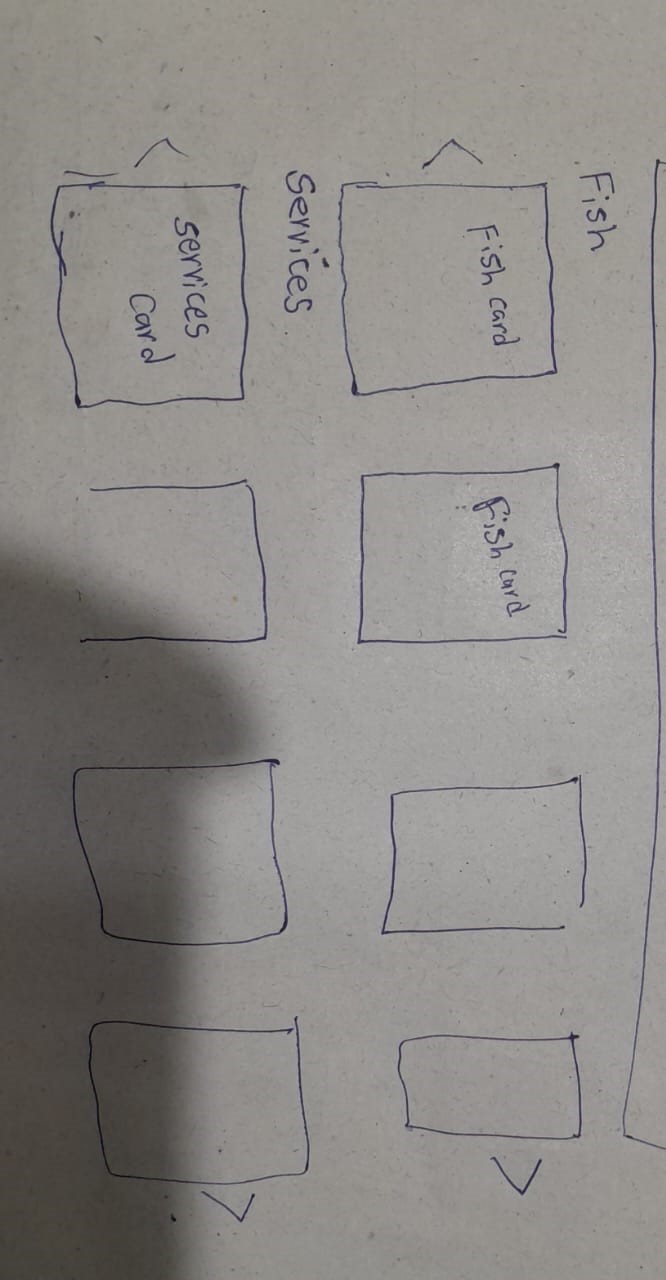 Fish
Fish card
Fish card
Services
Services
Card